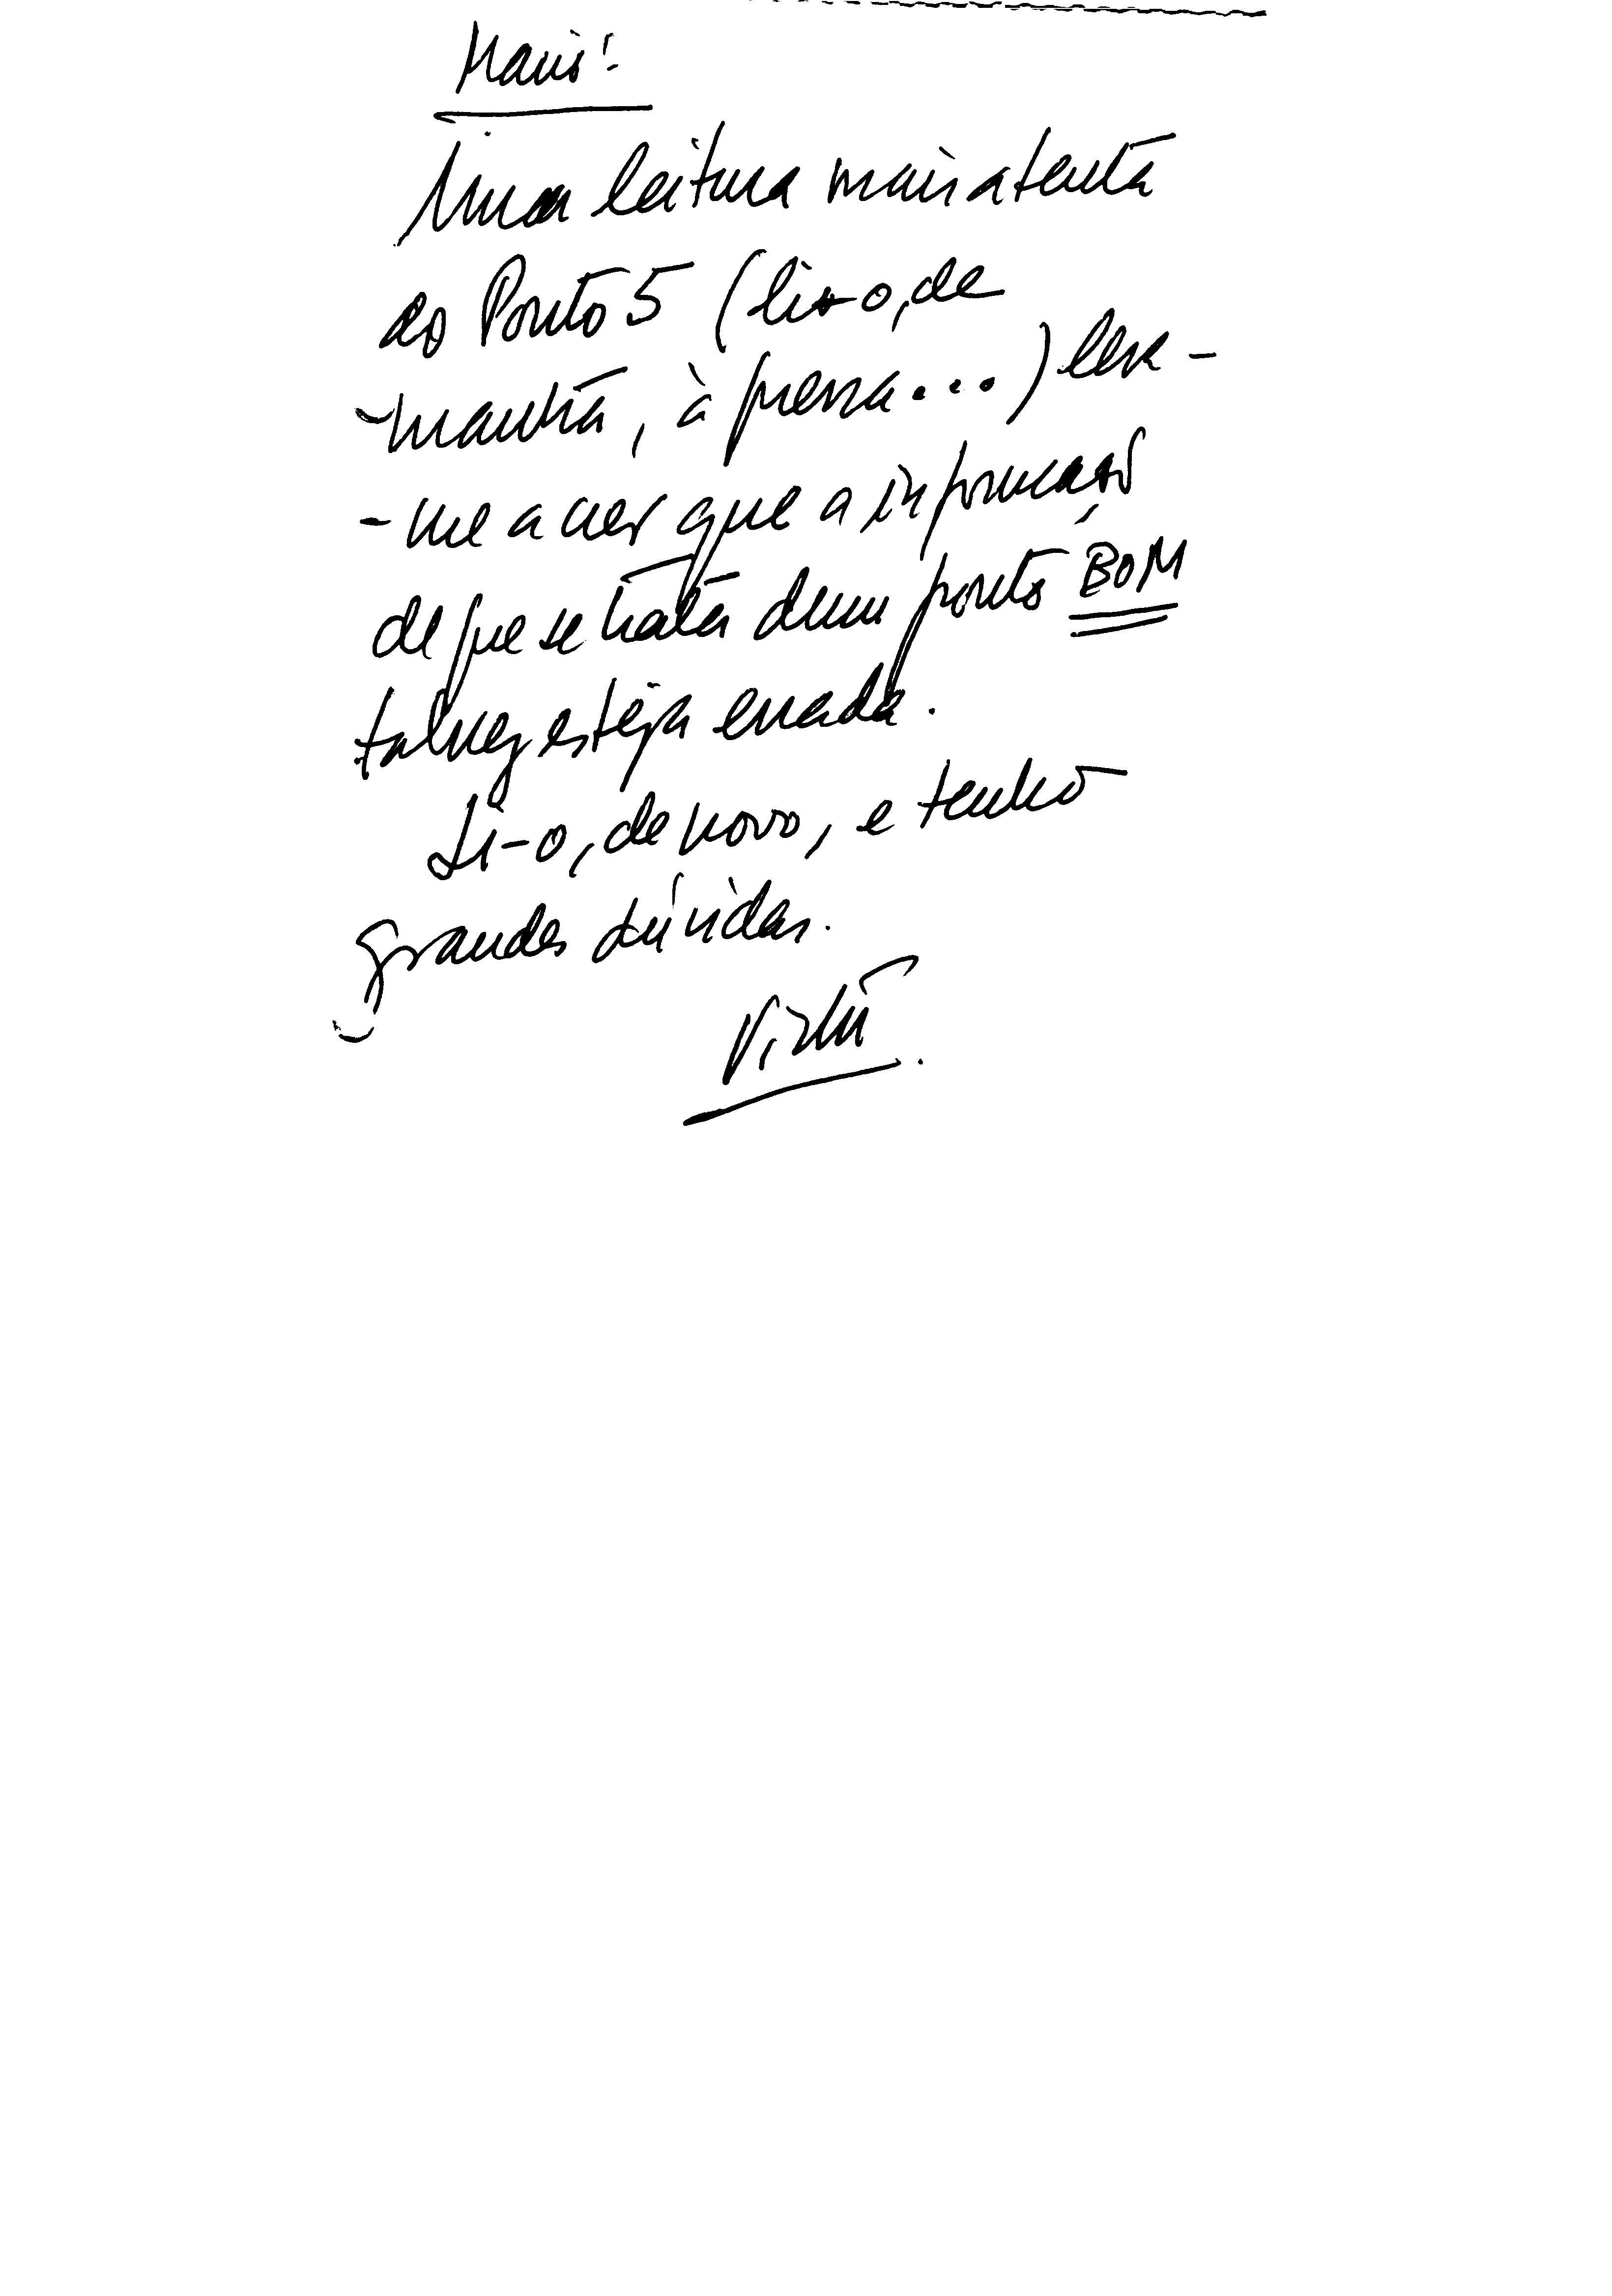 Uma leitura mais atenta
do Ponto 5 (li-o, de
manhã, à pressa...) leva-
-me a crer que a informação
de que se trata dum ponto BOM
talvez esteja errada.
Li-o, de novo, e tenho
grandes dúvidas.